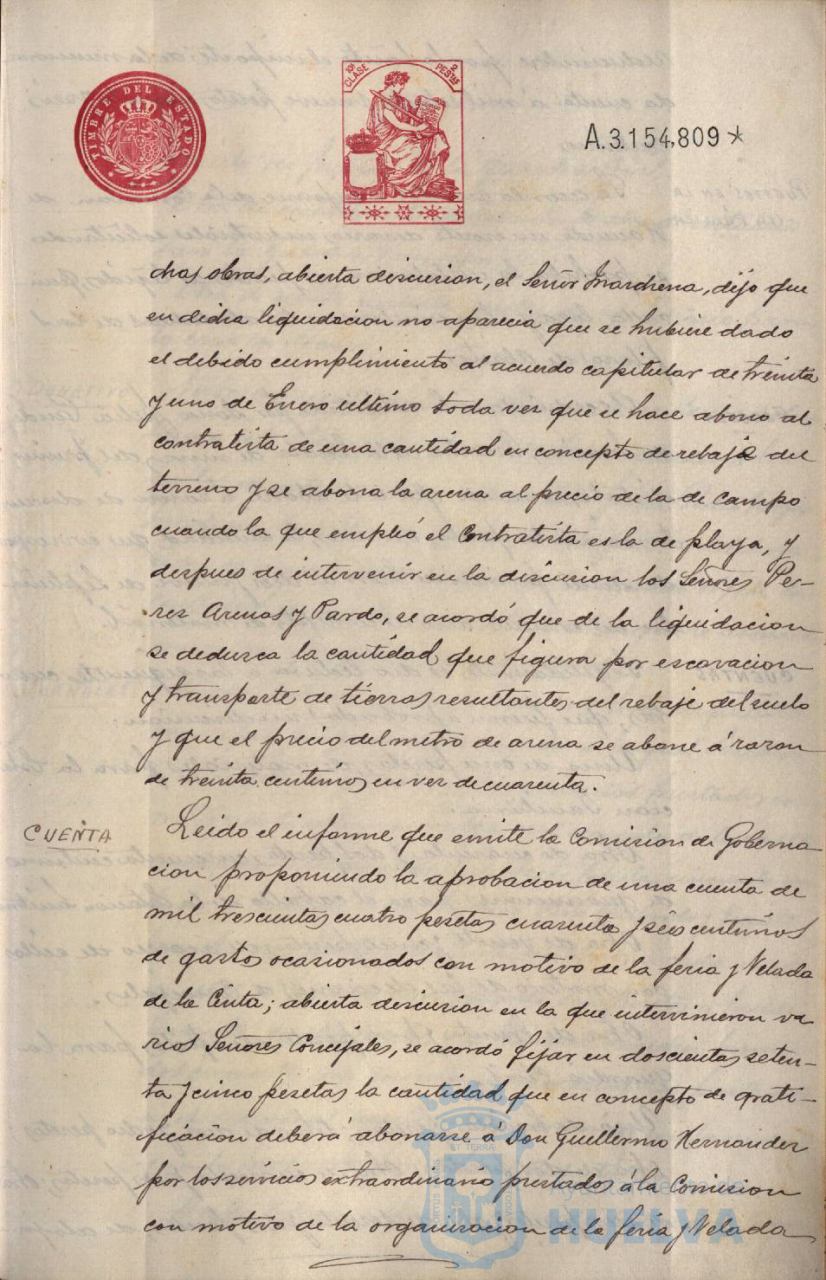 TIMBRE DEL ESTADO
10ª CLASE 2 PESTAS
A.3.154,809*
chas obras, abierta discusion, el Señor Marchena, dijo que
en dicha liquidacion no aparecia que se hubiere dado
el debido cumplimiento al acuerdo capitular de treinta
y uno de Enero ultimo toda vez que se hace abono al
contratista de una cantidad en concepto de rebaje del
terreno y se abona la arena al precio de la de campo
cuando la que empleó el Contratista es la de playa, y
despues de intervenir en la discusion los Señores Pe-
rez Arenas y Pardo, se acordó que de la liquidacion
se deduzca la cantidad que figura por escavacion
y transporte de tierras resultantes del rebaje del suelo
y que el precio del metro de arena se abone á razon
de treinta centimos en vez de cuarenta.
CUENTA
Leido el informe que emite la Comision de Goberna
cion proponiendo la aprobacion de una cuenta de
mil trescientas cuatro pesetas cuarenta y seis centimos
de gastos ocasionados con motivo de la feria y Velada
de la Cinta; abierta discusion en la que intervinieron va
rios Señores Concejales, se acordó fijar en doscientas seten-
ta y cinco pesetas la cantidad que en concepto de grati-
ficacion deberá abonarse á Don Guillermo Hernandez
por los servicios extraordinario prestados á la Comision
con motivo de la organizacion de la feria y Velada
HUELVA